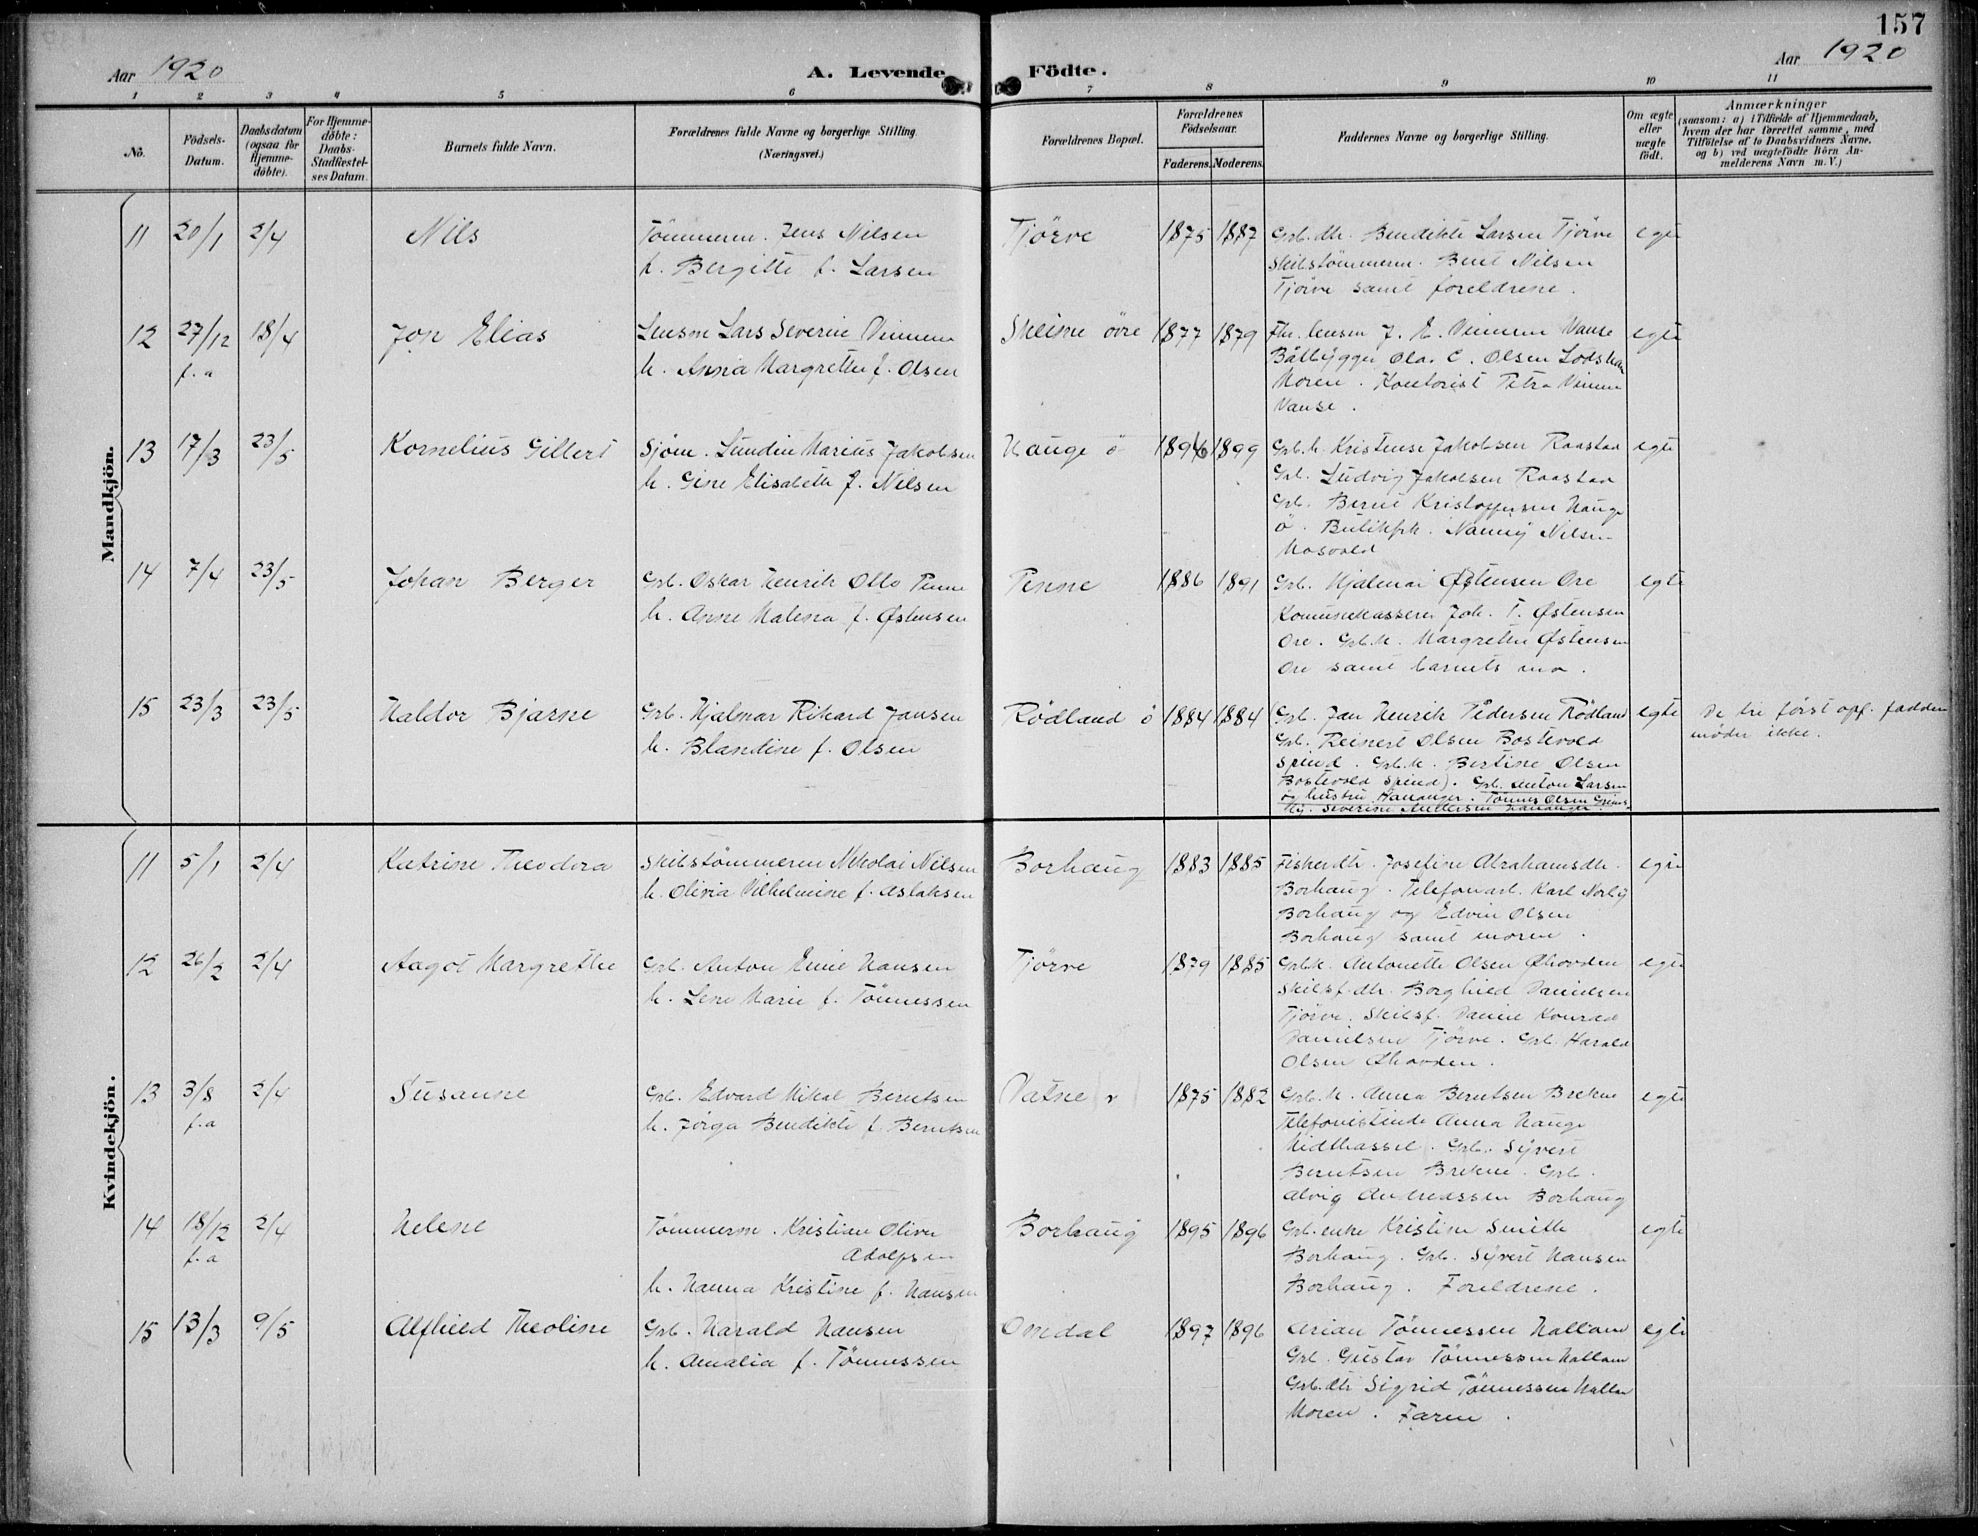 157
Aar 1920
A. Levende Födte.
Aar 1920
1 2 3 4 5 6 7 8 9 10 11
No.
Födsels-Datum.
Daabsdatum (ogsaa for Hjemme-döbte).
For Hjemme-döbte: Daabs-Stadfæstel-ses Datum.
Barnets fulde Navn.
Forældrenes fulde Navne og borgerlige Stilling.
(Næringsvei.)
Forældrenes Bopæl.
Forældrenes Födselsaar.
Faderens. Moderens.
Faddernes Navne og borgerlige Stilling.
Om ægte eller uægte födt.
Anmærkninger
(saasom: a) i Tilfælde af Hjemmedaab, hvem der har forrettet samme, med Tilföielse af to Daabsvidners Navne, og b) ved uægtefödte Börn An-melderens Navn m. V.)
Mandkjön.
11 20/1 2/4 Nils
Tömmerm. Jens Nilsen
h. Bergitte f. Larsen
Tjörve 1875 1887
Grb. dtr. Bendikte Larsen Tjörve
Skibstömmerm. Bent Nilsen
Tjörve samt foreldrene.
egte
12 27/12 f.a 18/4 Jon Elias
Lensm Lars Severin Vinnem
h. Anna Margrethe f. Olsen
Skeime övre 1877 1879
Fhv. lensm J. E. Vinnem Vanse
Båtbygger Ola. C. Olsen Lodshav
Moren. Kontorist Petra Vinnem
Vanse.
egte
13 17/3 23/5 Kornelius Gilbert
Sjöm. Lundin Marius Jakobsen
h. Gine Elisabeth f. Nilsen
Hauge ö 1896 1899
Grb. h. Kristense Jakobsen Raastad
Grb. Ludvig Jakobsen Raastad
Grb. Bernt Kristoffersen Hauge
ö. Butikfrk. Nanny Nilsen
Mosvold
egte
14 7/4 23/5 Johan Berger
Grb. Oskar Henrik Otto Penne
h. Anne Malena f. Østensen
Penne 1886 1891
Grb. Hjalmar Østensen Ore
Komunekasserer Joh. T. Østensen
Ore. Grb.h. Margrethe Østensen
Ore samt barnets mor.
egte
15 23/3 23/5 Haldor Bjarne
Grb. Hjalmar Rikard Jansen
h. Blandine f. Olsen
Rödland ö 1884 1884
Grb. Jan Henrik Pedersen Rödland
Grb. Reinert Olsen Bostevold
Spind. Grb.h. Bertine Olsen
Bostevold Spind). Grb. Anton Larsen
og hustru Hananger. Tönnes Olsen
Severine Andersen Hananger.
egte
De tre först opf. faddere
möder ikke.
Kvindekjön.
11 5/1 2/4 Katrine Theodora
Skibstömmerm Nikolai Nilsen
h. Olivia Vilhelmine f. Aslaksen
Borhaug 1883 1885
Fiskerdtr. Josefine Abrahamsdtr.
Borhaug. Telefonarb. Karl Norby
Borhaug og Edvin Olsen
Borhaug samt moren.
egte
12 26/2 2/4 Aagot Margrethe
Grb. Anton Emil Hansen
h. Lene Marie f. Tönnessen
Tjörve 1879 1885
Grb.h. Antonette Olsen Øhovden
Skibsf.dtr. Borghild Danielsen
Tjörve. Skibsf. Daniel Konrad
Danielsen Tjörve. Grb. Harald
Olsen Øhovden.
egte
13 3/8 f.a 2/4 Susanne
Grb. Edvard Mikal Berntsen
h. Jörga Bendikte f. Berntsen
Vatne v 1875 1882
Grb.h. Anna Berntsen Brekne
Telefonistinde Anna Hauge
Midthassel. Grb. Syvert
Berntsen Brekne. Grb.
Alvig Andreassen Borhaug
egte
14 18/12 f.a 2/4 Helene
Tömmerm. Kristian Oliver
Adolfsen
h. Hanna Kristine f. Hansen
Borhaug 1895 1896
Grb. enke Kristine Smith
Borhaug. Grb. Syvert Hansen
Borhaug. Foreldrene.
egte
15 13/3 9/5 Alfhild Theoline
Grb. Harald Hansen
h. Amalia f. Tönnessen
Omdal 1897 1896
Arian Tönnessen Nallum
Grb. Gustav Tönnessen Nallum
Grb.dtr Sigrid Tönnessen Nallum
Moren. Faren.
egte